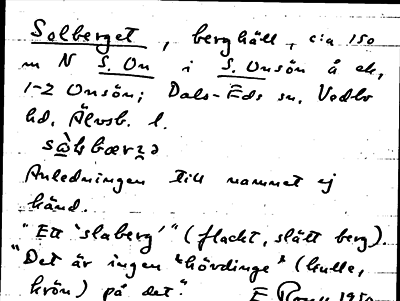 Solberget, berghäll, c:a 150
m N S. On i S. Onsön å ek,
1-2 Onsön; Dals-Eds sn, Vedbo
hd, Älvsb. l.
Anledningen till namnet ej
känd.
"Ett 'slaberg'" (flackt, slätt berg).
"Det är ingen "hövdinge" (kulle,
krön) på det".